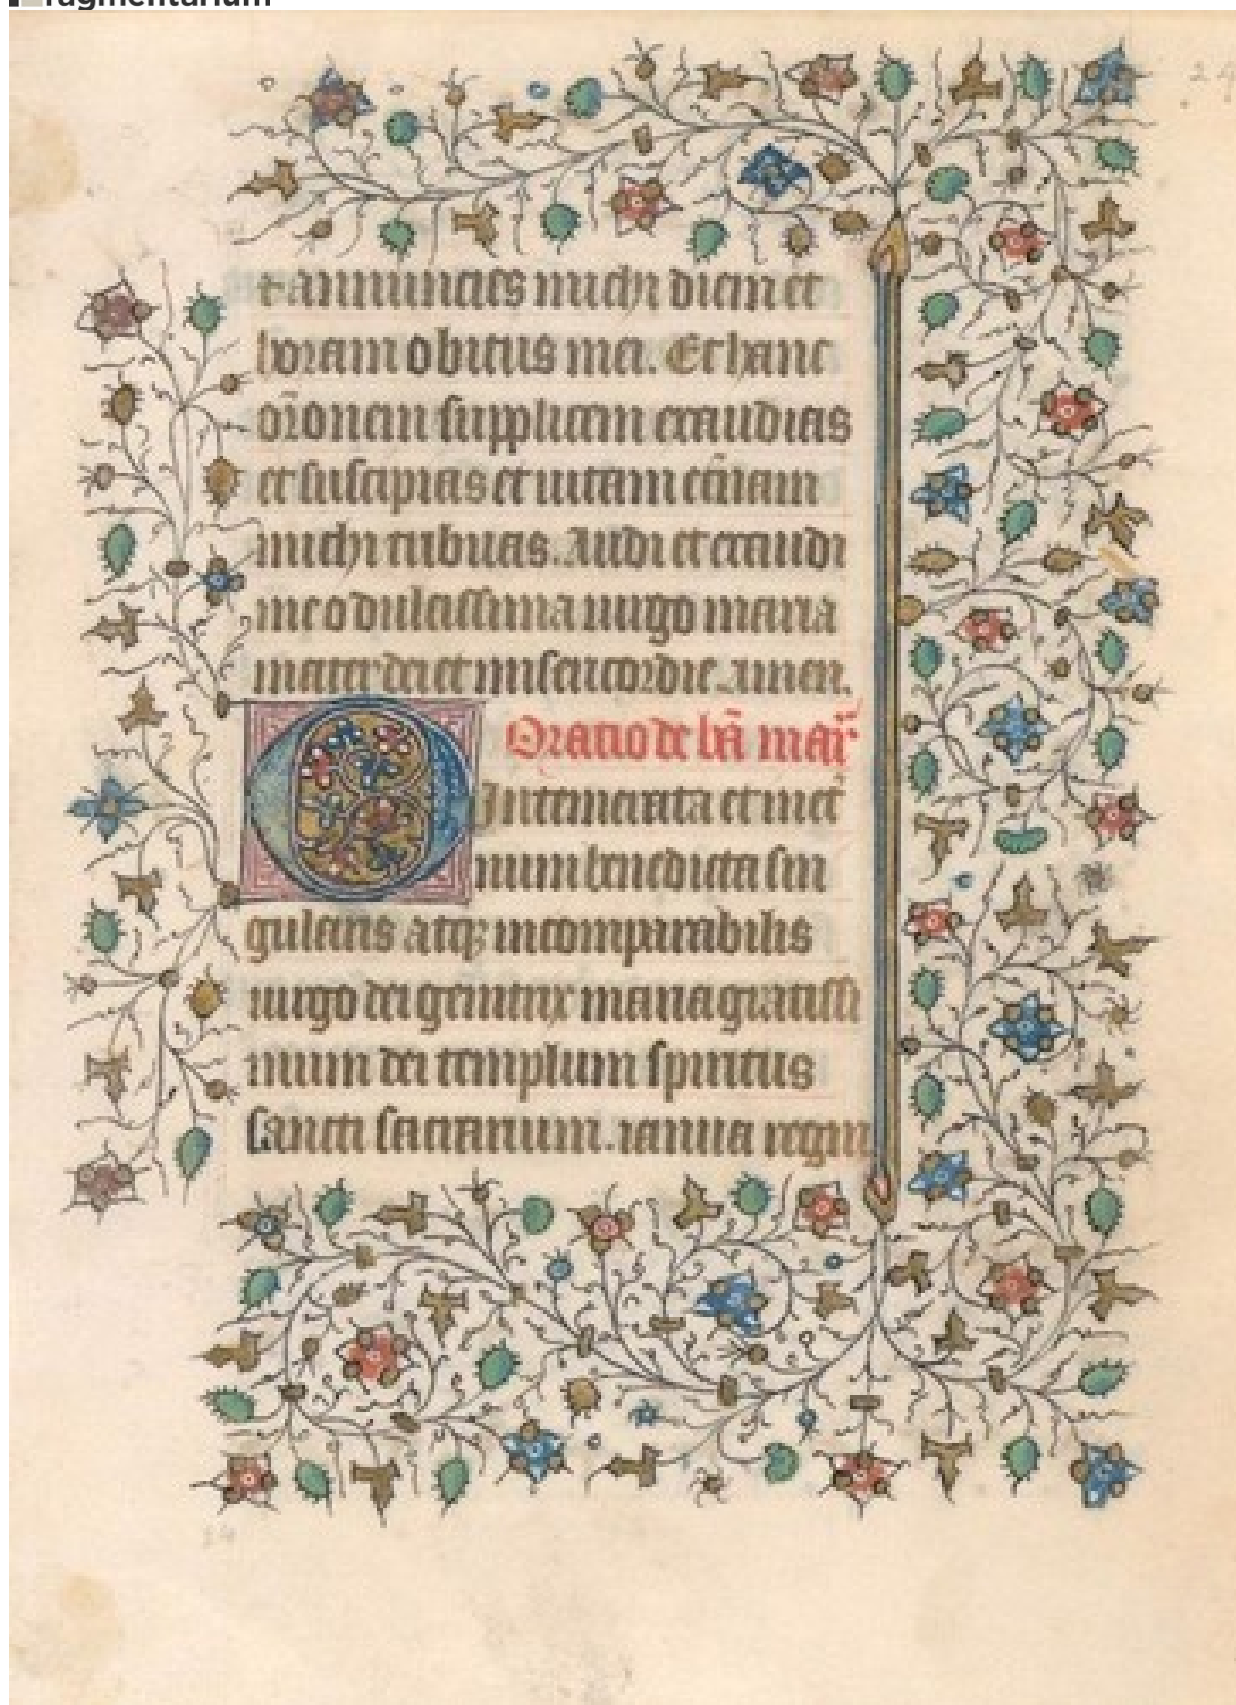 fragmentarium
24
et annuncies michi diem et
horam obitus mei. Et hanc
or̄onem supplicem exaudias
et suscipias et uitam et̄nam
michi tribuas. Audi et exaudi
me o dulcissima uirgo maria
mater dei et misericordie. Amen.
Oratio de bā mar̄
O Intemerata et inet̄
num benedicta sin
gularis atqꝫ incomparabilis
uirgo dei genitrix maria gratissi
mum dei templum spiritus
sancti sacrarium. ianua regni
24